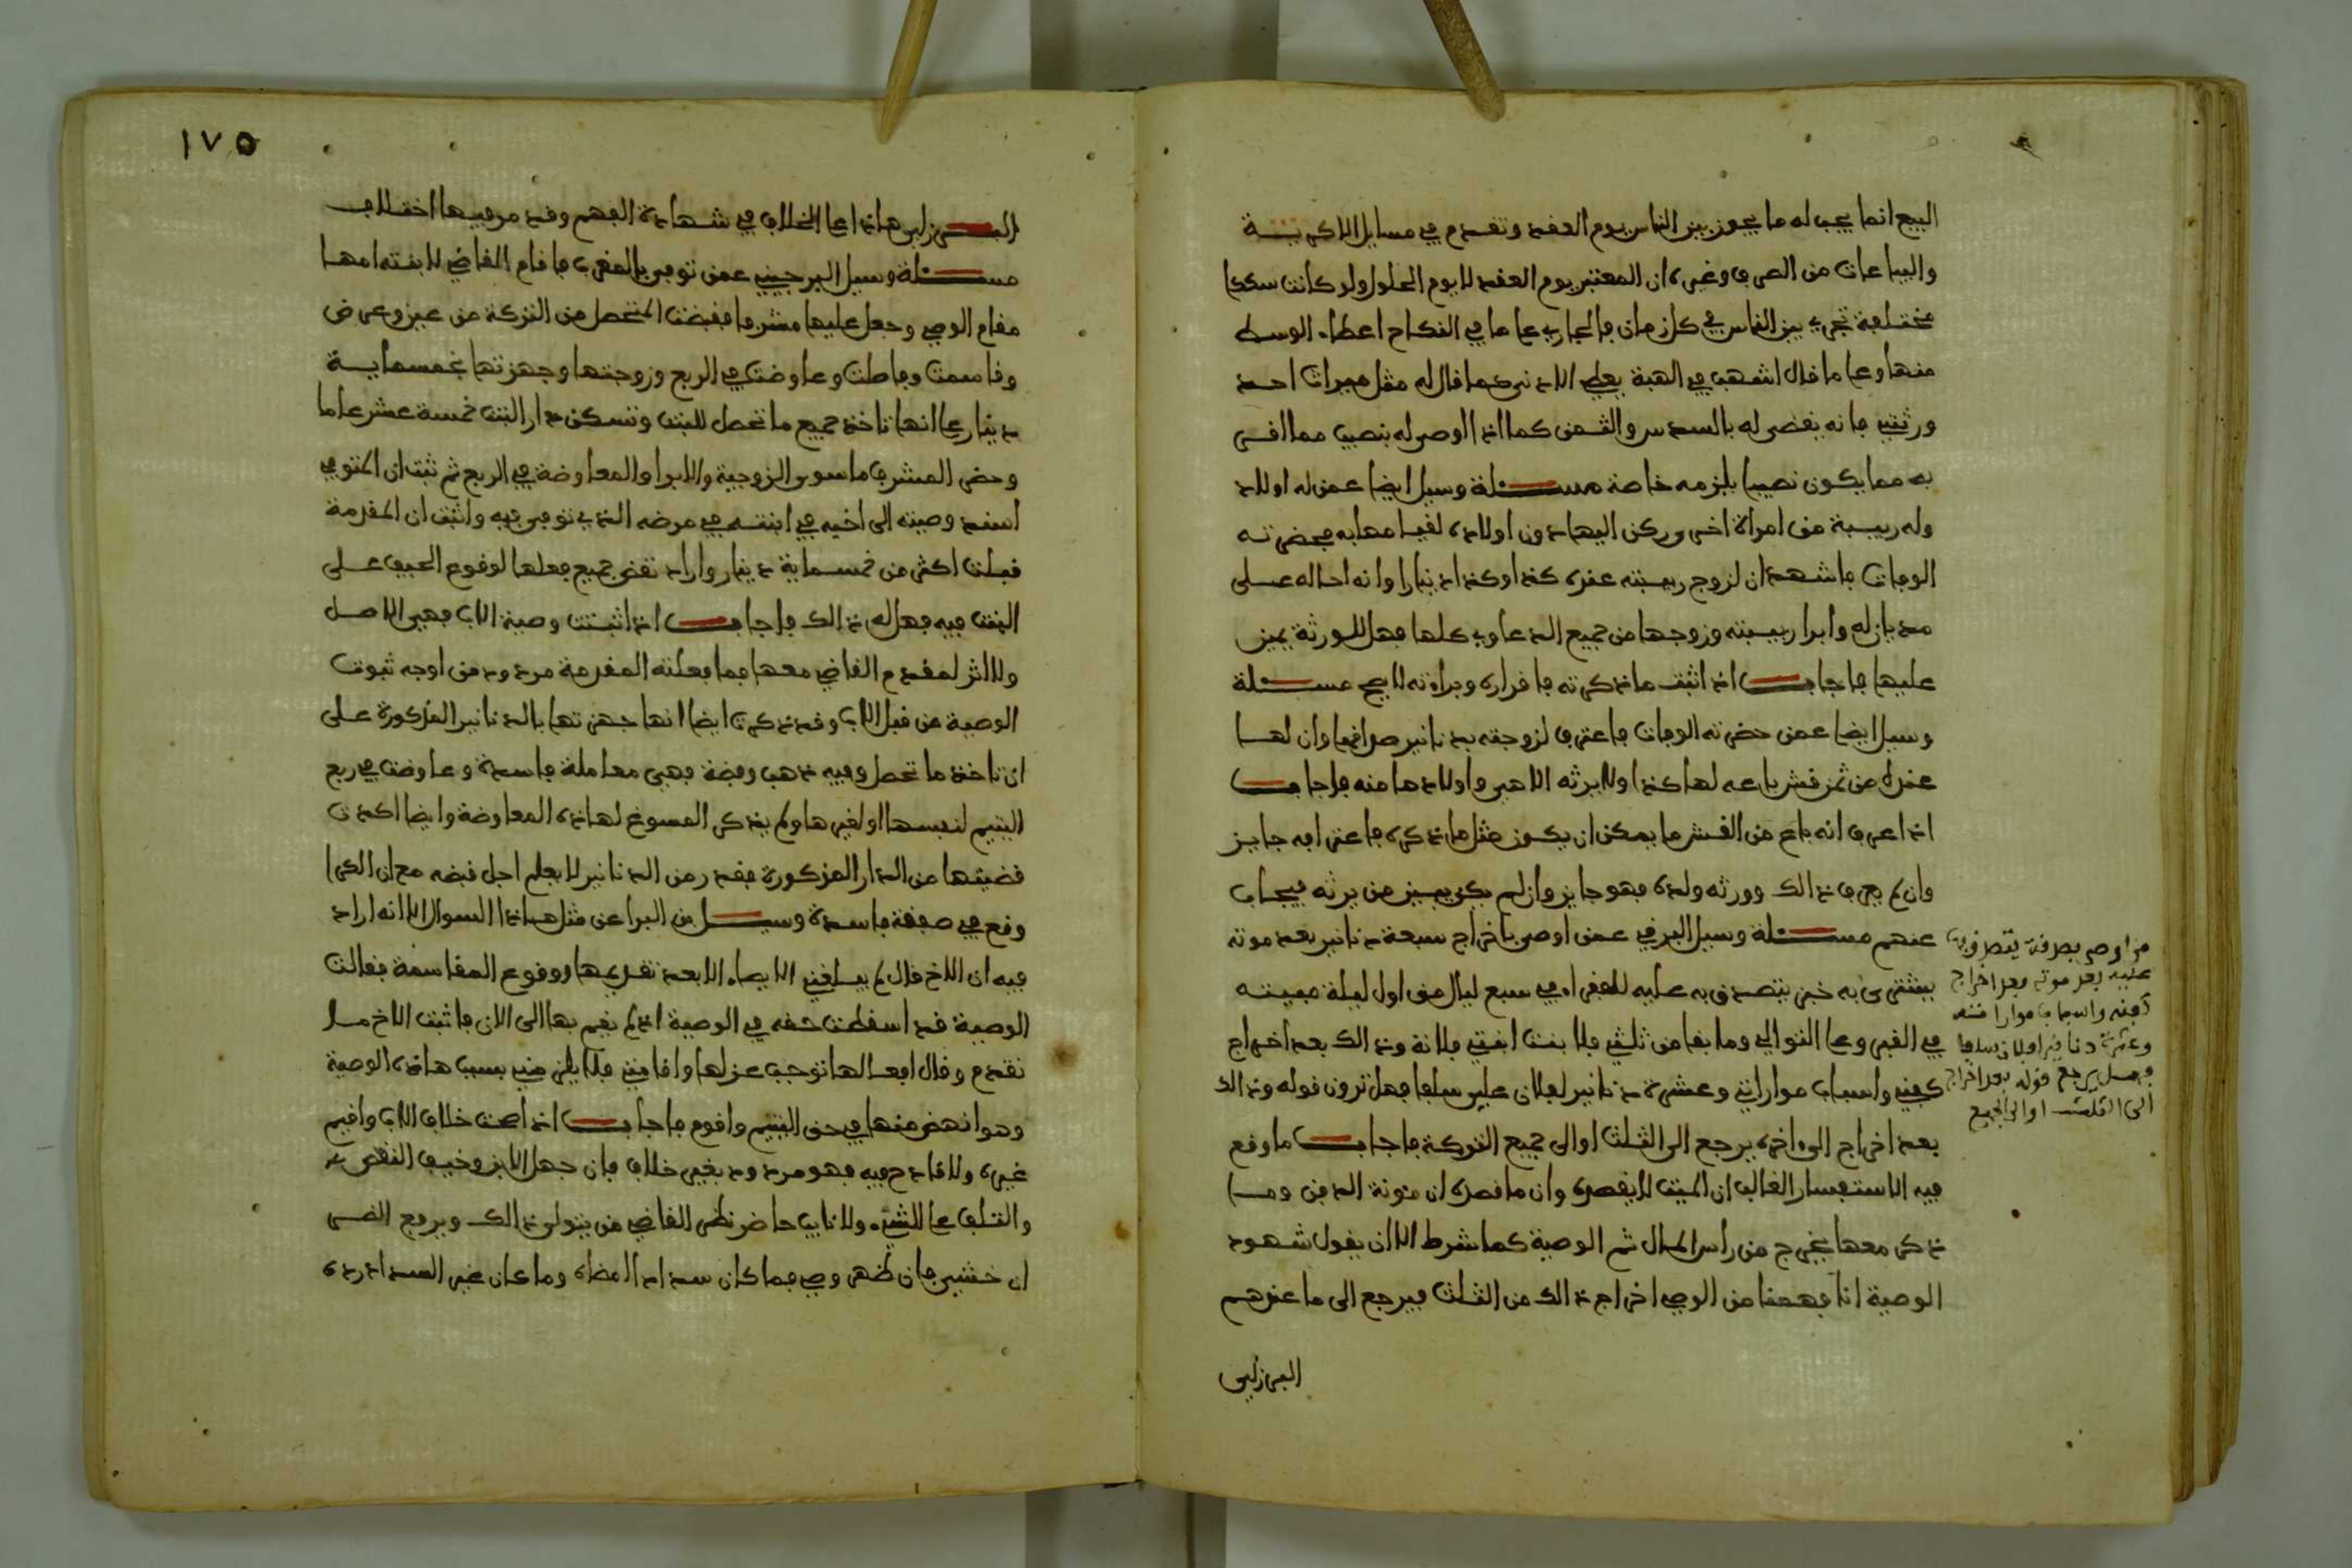 البيع انما يجب له ما يجوز بين الناس يوم العقد وتقدم في مسايل الاكرية
والبياعات من الصرف وغيره ان المعتبر يوم العقد لا يوم الحلول ولو كانت سككا
مختلفة تجري بين الناس في كل زمان فالجاري على ما في النكاح اعطاء الوسط
منها وعلى ما قال اشهب في الهبة يعطى الادنى كما قال له مثل ميراث احد
ورثتي فانه يقضى له بالسدس والثمن كما اذا اوصى له بنصيب مما اقر
به مما يكون نصيبا يلزمه خاصة مسئلة وسيل ايضا عمن له اولاد
وله ربيبة من امراة اخرى وركن اليها دون اولاده لقيامها به فحضرته
الوفات فاشهد ان لزوج ربيبته عنده كذا وكذا دينارا وانه احاله على
مديان له وابرا ربيبته وزوجها من جميع الدعاوى كلها فهل للورثة يمين
عليها فاجاب اذا ثبت ما ذكرته فاقراره وبراءته لا يصح مسئلة
وسيل ايضا عمن حضرته الوفات فاعترف لزوجته بدنانير صداقها وان لها
عنده من ثمن قش باعه لها كذا ولا يرثه الا هي واولادها منه فاجاب
اذا عرف انه باع من القش ما يمكن ان يكون مثل ما ذكره فاعترافه جايز
وان لم يعرف ذالك وورثه ولده فهو جايز وان لم يكن يبين من يرثه فيجاب
عنهم مسئلة وسيل البرقي عمن اوصى باخراج سبعة دنانير بعد موته
يشترى به خبز يتصدق به عليه للفقراء في سبع ليال من اول ليلة مبيته
في القبر وعلى التوالي وما بقا من ثلثي فلابنت ابنتي فلانة وذالك بعد اخراج
كفني واسباب مواراتي وعشرة دنانير لفلان علي سلفا فهل ترون قوله وذالك
بعد اخراج الى اخره يرجع الى الثلث او الى جميع التركة فاجاب ما وقع
فيه الاستفسار الغالب ان الميت لا يقصده وان ما قصده ان مئونة الدفن وما
ذكر معها يخرج من راس المال ثم الوصية كما شرط الا ان يقول شهود
الوصية انا فهمنا من الوصي اخراج ذالك من الثلث فيرجع الى ما عندهم
البرزلي
من اوصى بصرفة يتصرف بها
عليه بعد موته بعد اخراج
كفنه واسباب مواراته
وعشرة دنانير لفلان سلفا
فهل يرجع قوله بعد اخراج
الى الثلث او الى الجميع
١٧٥
البرزلي هاذا على الخلاف في شهادة الفهم وقد مر فيها اختلاف
مسئلة وسيل البرجيني عمن توفي بالمغرب فاقام القاضي لابنته امها
مقام الوصي وجعل عليها مشرفا فقبضت المتحصل من التركة من عين وعرض
وقاسمت وفاصلت وعاوضت في الربع وزوجتها وجهزتها بخمسماية
دينار على انها تاخذ جميع ما تحصل للبنت وتسكن دار البنت خمسة عشر عاما
وحضر المشرف ما سوى الزوجية والابرا والمعاوضة في الربع ثم ثبت ان المتوفي
اسند وصيته الى اخيه في ابنته في مرضه الذي توفي فيه واثبت ان المقدمة
قبلت اكثر من خمسماية دينار واراد نقض جميع فعلها لوقوع الحيف على
البنت فيه فهل له ذالك فاجاب اذا ثبتت وصية الاب فهي الاصل
ولا اثر لمقدم القاضي معها فما فعلته المقدمة مردود من اوجه ثبوت
الوصية من قبل الاب وقد ذكرت ايضا انها جهزتها بالدنانير المذكورة على
ان تاخذ ما تحصل وفيه ذهب وفضة فهي معاملة فاسدة وعاوضت في ربع
اليتيم لنفسها او لغيرها ولم يذكر المسوغ لهاذه المعاوضة وايضا اكدت
قضيتها من الدار المذكورة بقدر من الدنانير لا يعلم اجل قبضه مع ان الكرا
وقع في صفقة فاسدة وسيل بن البرا عن مثل هاذا السوال الا انه اراد
فيه ان الاخ قال لم يبلغني الايصاء الا بعد تقديمها ووقوع المقاسمة فقالت
الوصية قد اسقطت حقه في الوصية اذ لم يقم بها الى الان فاثبت الاخ ما
تقدم وقال افعالها توجب عزلها واقامتي فلا يلزمني بسبب هاذه الوصية
وهو انهض منها في حق اليتيم واقوم فاجاب اذا صحت خلاف الاب واقيم
غيره ولا قادح فيه فهو مردود بغير خلاف فان جهل الابن وخيف النقص
والتلف على الشيء ولا نايب حاضر نظر القاضي من يتولى ذالك ويرفع الضرر
ان خشي فان ظهر وصي فما كان سدادا امضاه وما كان غير السداد رده